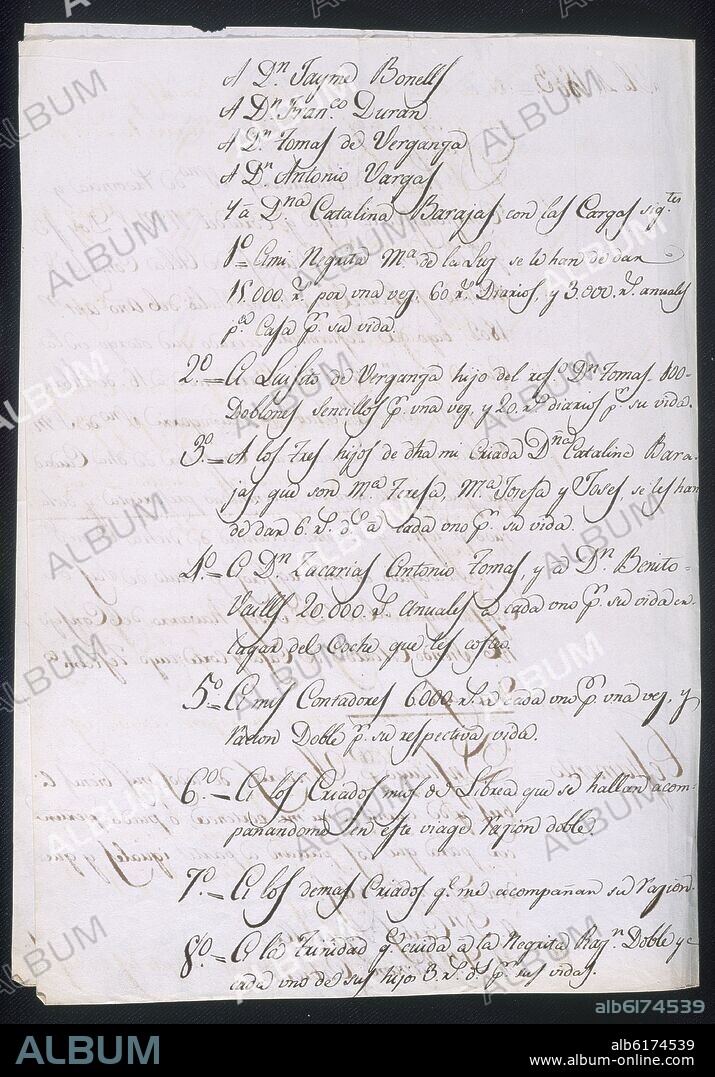 A Dn Jayme Bonells
A Dn Franco Duran
A Dn Tomas de Verganza
A Dn Antonio Vargas
y a Dna Catalina Barajas con las Cargas sigtes
1o = A mi Negrita Ma de la Luz se le han de dar
15.000 rs. por una vez, 60 rs. Diarios, y 3.000 rs. anuales
pa Casa pr. su vida.
2o = A Luisito de Verganza hijo del Dn Tomas 100
Doblones sencillos pr. una vez, y 20 rs. diarios pr. su vida.
3o = A los tres hijos de dha mi criada Dna Catalina Bara-
jas, que son Ma Teresa, Ma Josefa y Josef, se les han
de dar 6. rs. ds. a cada uno pr. su vida.
4o = A Dn Zacarias Antonio Tomas, y a Dn Benito
20.000 rs. anuales a cada uno pr. su vida en
lugar del Coche que les costeo.
5o = A mis Contadores 6.000 rs. a cada uno pr. una vez, y
racion Doble pr. su respectiva vida.
6o = A los Criados mios de Librea que se hallan acom-
pañandome en este viage razion doble.
7o = A los demas Criados qe. me acompañan su razion.
8o = A la Trinidad qe. cuida a la Negrita Razn. Doble y a
cada uno de sus hijos 3. rs. ds. pr. sus vidas.
ALBUM
alb6174539
ALBUM
alb6174539
www.album-online.com